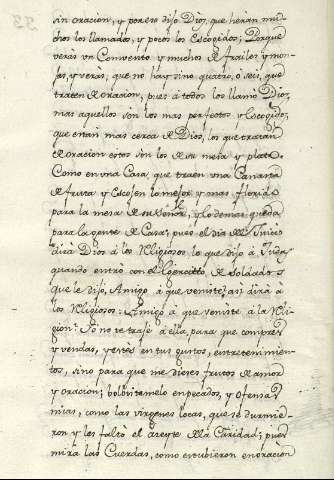 sin oracion, y por eso dijo Dios, que heran mu-
chos los llamados, y pocos los Escogidos; Porque
verás un Convento y muchos Frailes, y mon-
jas, y veras, que no hay sino quatro, o seis, que
traten de oracion, pues á todos los llamo Dios,
mas aquellos son los mas perfectos y Escogidos,
que estan mas cerca de Dios, los que tratan
de oracion estos son los de su mesa y plato.
Como en una Casa, que traen una Canasta
de fruta y Escojen lo mejor y mas florido
para la mesa de su Señor, y lo demas queda
para la gente de Casa; pues el dia del Juicio
dirá Dios á los Religiosos lo que dijo á Judas
quando entró con el Egercito de Soldados
que le dijo, Amigo á que veniste? asi dirá a
los Religiosos: Amigo á que veniste á la Reli-
gion? Yo no te traje á ella, para que compres
y vendas, y estés en tus gustos, entretenimien-
tos, sino para que me dieses frutos de amor
y oracion; bolvistemelo en pecados, y ofensas
mias, como las virgenes locas, que se durmie-
ron y les faltó el aseyte de la Caridad; pues
mirá las Cuerdas, como estubieron en oracion